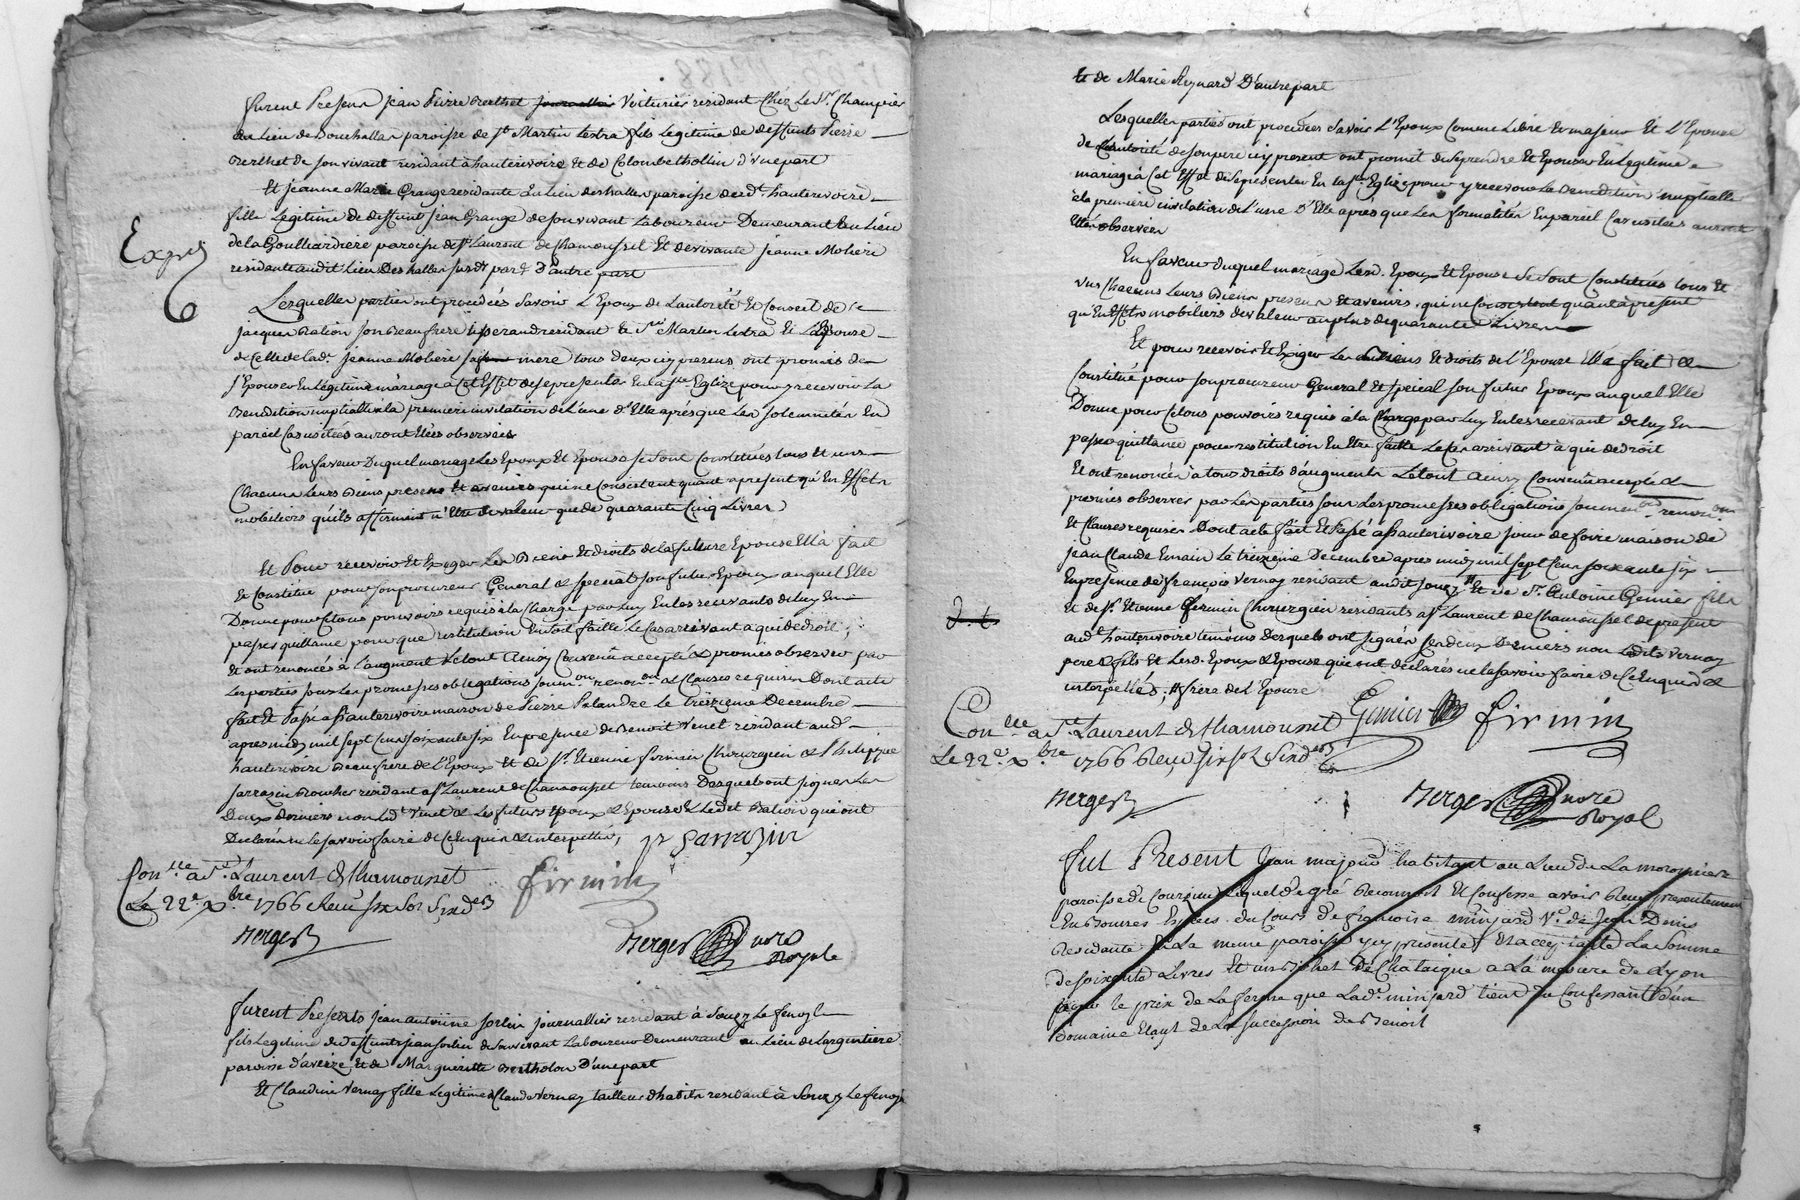 furent Presens jean Pierre Berthet journallier Voiturier residant Chéz Le Sr. Champier
du Lieu de Bouchalla paroisse de St Martin Lestra fils Legitime de deffunts Pierre
Berthet de son vivant residant a hauterivoire et de Colombe thollin d'une part
Et jeanne Marie Grange residante au Lieu des halles paroisse dud. hauterivoire
fille Legitime de deffunt jean Grange de son vivant Laboureur Demeurant au Lieu
de la Goulliardiere paroisse de St Laurent de Chamousset Et de vivante jeanne Molieri
residante audit Lieu Des halles susd. parss. D'autre part
Expés
Lesquelles parties ont procédées Savoir L'Epoux de Lautorité Et Conseil de
jacques Bation son beau frere tisserand residant a St Martin Lestra Et L'Epouse
de Celle de lad. jeanne Molieri sa mere tous deux icy presens ont promis de
s'Epouser En Legitime mariage à Cet Effet de se presenter En La Ste Eglize pour y recevoir La
Benediction nuptialle à la premiere invitation de L'une d'Elle apres que Les solemnités En
pareil Cas usitées auront Etées observées
En faveur Duquel mariage Les Epoux Et Epouse se sont Constitués tous Et uns
Chacuns Leurs Biens presens Et avenirs qui ne Consistent quant apresent qu'En Effets
mobiliers qu'ils affirment n'Etre de valeur que de quarante Cinq Livres
Et Pour recevoir Et Exiger Les Biens Et droits de la future Epouse Ella fait
Et Constitué pour son procureur General & special son futur Epoux auquel Elle
Donne pour Ce tous pouvoirs requis a la Charge par Luy En les recevants de Luy En
passer quittance pour que restitution En soit faitte Le Cas arrivant a qui de droit;
Et ont renoncés à L'augment Le tout Ainsy Convenû accepté & promis observer par
Les parties sous Les promesses obligations soumon. renonon. & Clauses requises Dont acte
fait Et Passé a hauterivoire maison de Pierre Palandre Le treizieme Decembre
apres midy mil sept Cent soixante six En presence de Benoit Venet residant aud.
hauterivoire Beau frere de L'Epoux Et de Sr. Etienne firmin Chirurgien & Philippe
sarrazin Boucher residant a St Laurent de Chamousset temoins Desquels ont signes Les
Deux Derniers non Led. Venet & Les futurs Epoux & Epouse & Ledit Bation qui ont
Declarés ne Le savoir faire de Ce Enquis & interpellés, p sarrazin
Conllé a St. Laurent de Chamousset
firmin
Le 22e Xbre 1766 Reçu six Sols six ders
Berger
Berger nore
Royale
furent Presents jean antoinne sorlin journallier residant à Souzy Le fenoyl
fils Legitime de deffunts jean sorlin de son vivant Laboureur Demeurant au Lieu de Largentiere
paroisse d'aveize Et de Margueritte Bertholon D'une part
Et Claudine Vernay fille Legitime à Claude Vernay tailleur d'habits residant à Souzy Le fenoyl
Et de Marie Reynard D'autre part
Lesquelles parties ont procédées Savoir L'Epoux Comme Libre Et majeur Et L'Epouse
de Lautorité de son pere icy present ont promis de se prendre Et Epouser En Legitime
mariage à Cet Effet de se presenter En La Ste. Eglize pour y recevoir La Benediction nuptialle
à la premiere invitation de L'une D'Elle après que Les formalités En pareil Cas usitées auront
Etées observées
En faveur duquel mariage Lesd. Epoux Et Epouse se sont Constitués tous Et
uns Chacuns Leurs Biens presens Et avenirs qui ne Consistent quant apresent
qu'En Effets mobiliers de valeur au plus de quarante Livres
Et pour recevoir Et Exiger Les Biens Et droits de L'Epouse Elle a fait &
Constitué pour son procureur General Et special son futur Epoux auquel Elle
Donne pour Ce tous pouvoirs requis à la Charge par Luy En les recevant de Luy En
passer quittance pour restitution En Etre faitte Le Cas arrivant à qui de droit
Et ont renoncés à tous droits d'augment Le tout Ainsy Convenû accepté &
promis observer par Les parties sous Les promesses obligations soumon. renonon.
Et Clauses requises Dont acte fait Et Passé a hauterivoire jour de foire maison de
jean Claude Emain Le treizieme Decembre apres midy mil sept Cent soixante six
En presence de françois Vernay residant audit souzy # Et de Sr. Antoine Gemier fils
Et de Sr. Etienne firmin Chirurgien residants a St Laurent de Chamousset de present
aud. hauterivoire temoins Desquels ont signés Les deux Derniers non Lesdits Vernay
pere & fils Et Lesd. Epoux & Epouse qui ont declarés ne le savoir faire de Ce Enquis &
interpellés; # frere de L'Epouse
Gemier
firmin
Conllé a St. Laurent de Chamousset
Le 22e Xbre 1766 Reçu six s. six ders
Berger
Berger nore
Royal
fut Present Jean majour habitant au Lieu de La moronniere
paroisse de Courzieu Lequel de gré Reconnoit Et Confesse avoir Reçu presentement
En Bonnes Especes du Cours de francoise minjard Ve. de Jean Denis
Residante En La meme paroisse icy presente Et acceptante La Somme
de soixante Livres Et un Bichet De Chataigne a La mesure de Lyon
pour le prix de La ferme que Lad. minjard tient du Confessant d'un
Domaine Etant de La succession de Benoit